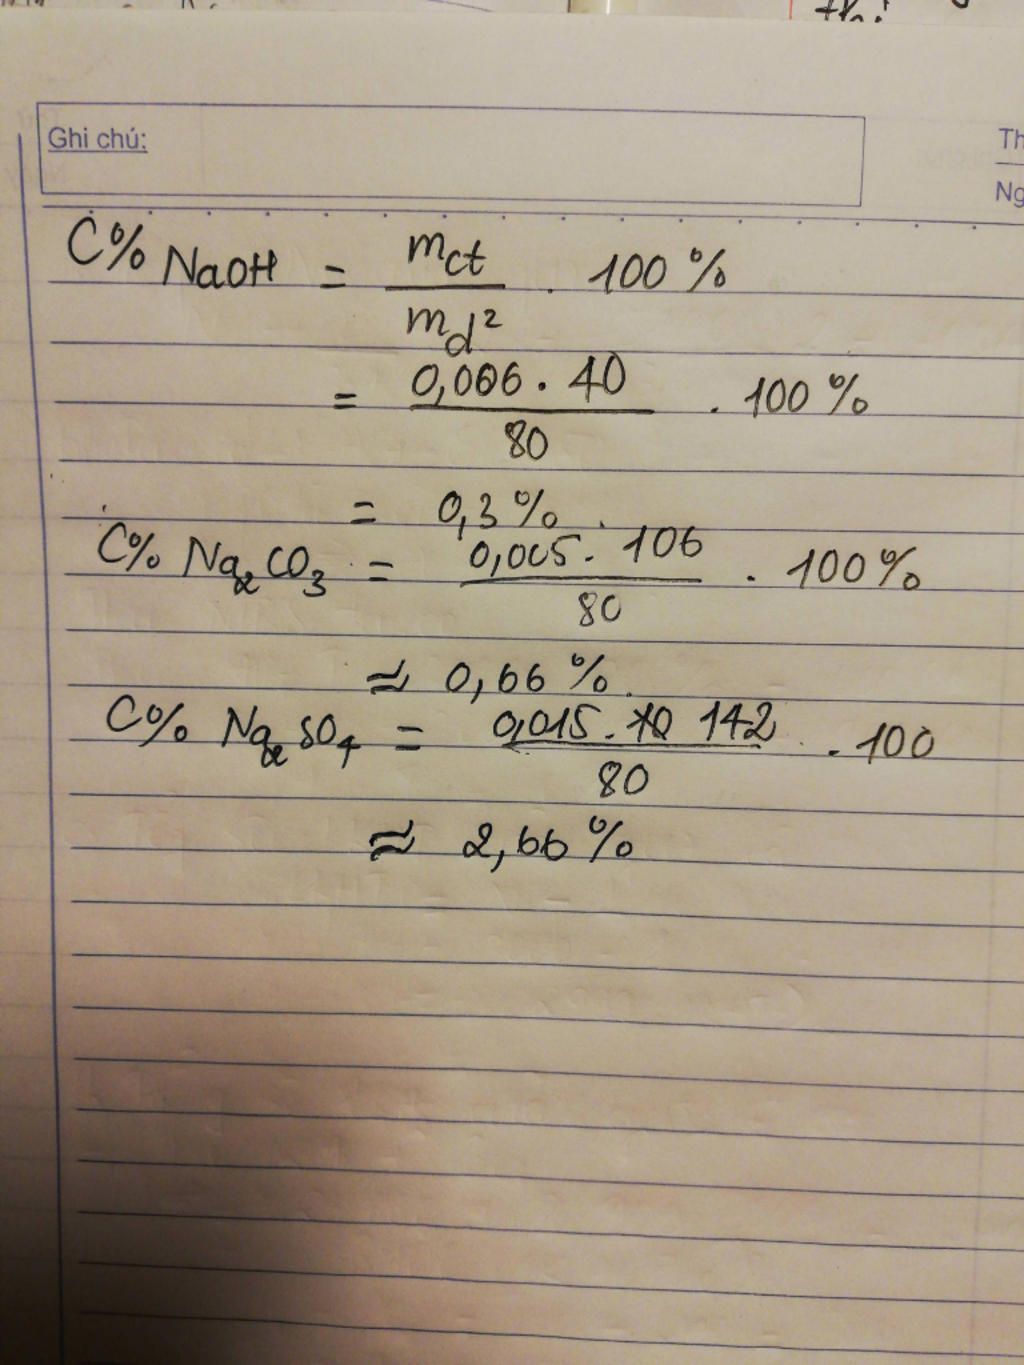 thi
Ghi chú:
Th
Ng
C% NaOH = mct / md² . 100%
= 0,006 . 40 / 80 . 100%
= 0,3% .
C% Na2CO3 = 0,005 . 106 / 80 . 100%
≈ 0,66%.
C% Na2SO4 = 0,015 . 142 / 80 . 100
≈ 2,66%